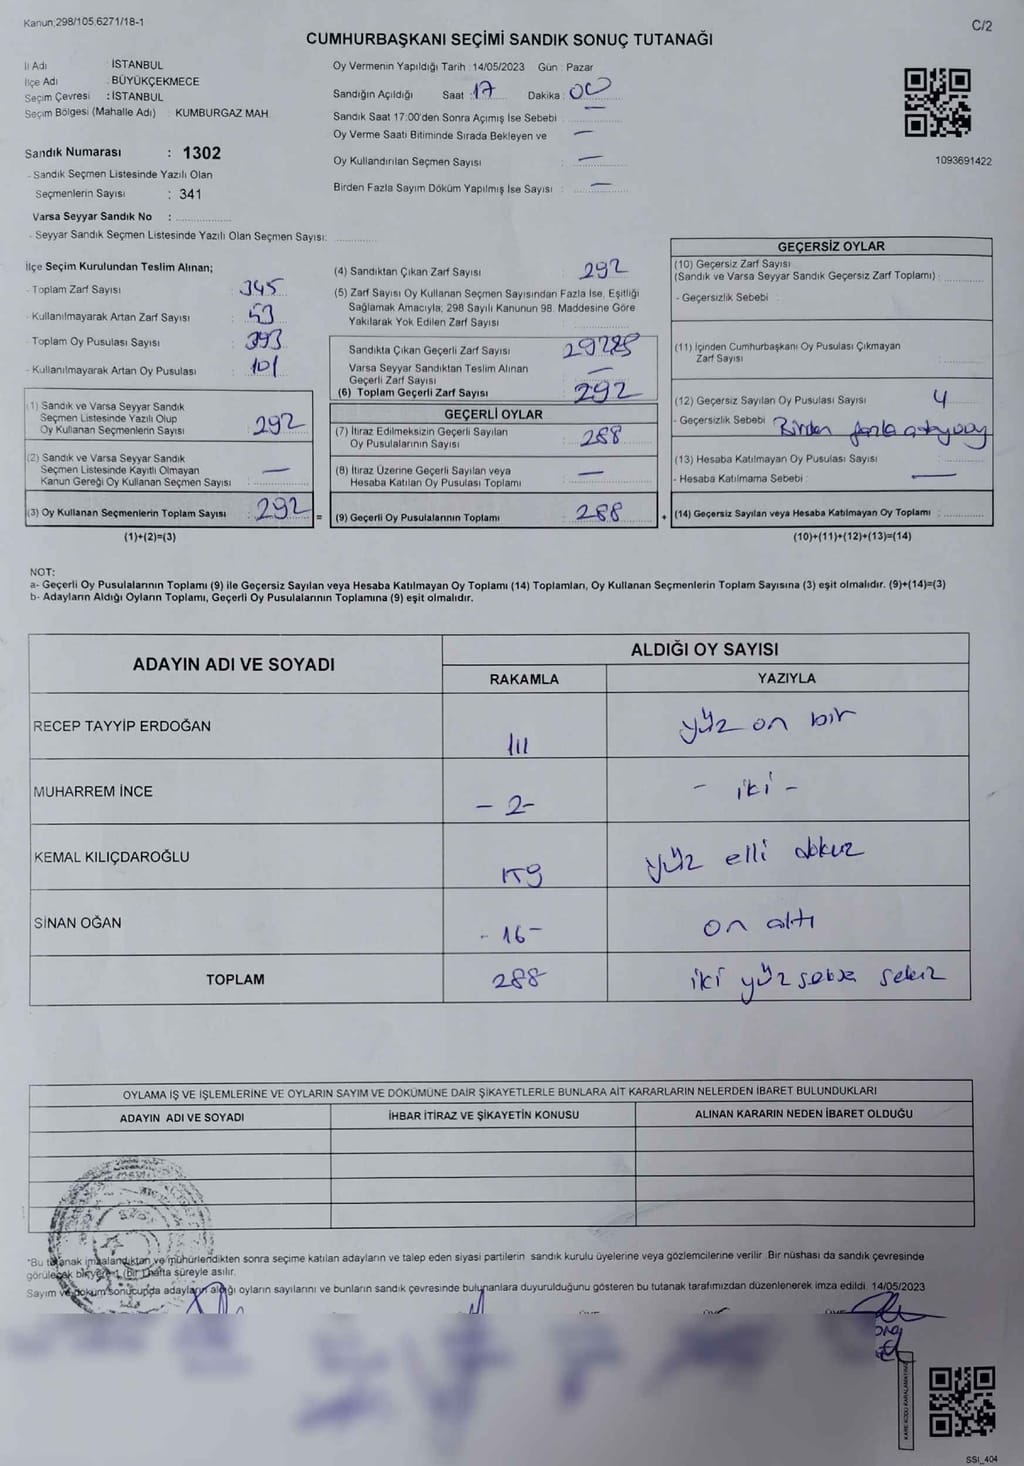 Kanun;298/105,6271/18-1
C/2
CUMHURBAŞKANI SEÇİMİ SANDIK SONUÇ TUTANAĞI
İl Adı : İSTANBUL
İlçe Adı : BÜYÜKÇEKMECE
Seçim Çevresi : İSTANBUL
Seçim Bölgesi (Mahalle Adı) : KUMBURGAZ MAH.
Sandık Numarası : 1302
- Sandık Seçmen Listesinde Yazılı Olan
Seçmenlerin Sayısı : 341
Varsa Seyyar Sandık No :
- Seyyar Sandık Seçmen Listesinde Yazılı Olan Seçmen Sayısı:
Oy Vermenin Yapıldığı Tarih : 14/05/2023 Gün : Pazar
Sandığın Açıldığı Saat : 17 Dakika : 00
Sandık Saat 17:00'den Sonra Açımış İse Sebebi : —
Oy Verme Saati Bitiminde Sırada Bekleyen ve —
Oy Kullandırılan Seçmen Sayısı : —
Birden Fazla Sayım Döküm Yapılmış İse Sayısı : —
1093691422
İlçe Seçim Kurulundan Teslim Alınan;
- Toplam Zarf Sayısı : 345
- Kullanılmayarak Artan Zarf Sayısı : 53
- Toplam Oy Pusulası Sayısı : 393
- Kullanılmayarak Artan Oy Pusulası : 101
(1) Sandık ve Varsa Seyyar Sandık
Seçmen Listesinde Yazılı Olup
Oy Kullanan Seçmenlerin Sayısı : 292
(2) Sandık ve Varsa Seyyar Sandık
Seçmen Listesinde Kayıtlı Olmayan
Kanun Gereği Oy Kullanan Seçmen Sayısı : —
(3) Oy Kullanan Seçmenlerin Toplam Sayısı : 292 =
(1)+(2)=(3)
(4) Sandıktan Çıkan Zarf Sayısı : 292
(5) Zarf Sayısı Oy Kullanan Seçmen Sayısından Fazla İse, Eşitliği
Sağlamak Amacıyla; 298 Sayılı Kanunun 98. Maddesine Göre
Yakılarak Yok Edilen Zarf Sayısı :
Sandıkta Çıkan Geçerli Zarf Sayısı :
Varsa Seyyar Sandıktan Teslim Alınan
Geçerli Zarf Sayısı : —
(6) Toplam Geçerli Zarf Sayısı : 292
GEÇERLİ OYLAR
(7) İtiraz Edilmeksizin Geçerli Sayılan
Oy Pusulalarının Sayısı : 288
(8) İtiraz Üzerine Geçerli Sayılan veya
Hesaba Katılan Oy Pusulası Toplamı : —
(9) Geçerli Oy Pusulalarının Toplamı : 288 +
GEÇERSİZ OYLAR
(10) Geçersiz Zarf Sayısı
(Sandık ve Varsa Seyyar Sandık Geçersiz Zarf Toplamı) :
- Geçersizlik Sebebi :
(11) İçinden Cumhurbaşkanı Oy Pusulası Çıkmayan
Zarf Sayısı :
(12) Geçersiz Sayılan Oy Pusulası Sayısı : 4
- Geçersizlik Sebebi : Birden fazla
(13) Hesaba Katılmayan Oy Pusulası Sayısı :
- Hesaba Katılmama Sebebi : —
(14) Geçersiz Sayılan veya Hesaba Katılmayan Oy Toplamı :
(10)+(11)+(12)+(13)=(14)
NOT:
a- Geçerli Oy Pusulalarının Toplamı (9) ile Geçersiz Sayılan veya Hesaba Katılmayan Oy Toplamı (14) Toplamları, Oy Kullanan Seçmenlerin Toplam Sayısına (3) eşit olmalıdır. (9)+(14)=(3)
b- Adayların Aldığı Oyların Toplamı, Geçerli Oy Pusulalarının Toplamına (9) eşit olmalıdır.
ADAYIN ADI VE SOYADI
ALDIĞI OY SAYISI
RAKAMLA YAZIYLA
RECEP TAYYİP ERDOĞAN 111 yüz on bir
MUHARREM İNCE - 2 - - iki -
KEMAL KILIÇDAROĞLU 159 yüz elli dokuz
SİNAN OĞAN - 16 - on altı
TOPLAM 288 iki yüz seksen sekiz
OYLAMA İŞ VE İŞLEMLERİNE VE OYLARIN SAYIM VE DÖKÜMÜNE DAİR ŞİKAYETLERLE BUNLARA AİT KARARLARIN NELERDEN İBARET BULUNDUKLARI
ADAYIN ADI VE SOYADI İHBAR İTİRAZ VE ŞİKAYETİN KONUSU ALINAN KARARIN NEDEN İBARET OLDUĞU
*Bu tutanak imzalandıktan ve mühürlendikten sonra seçime katılan adayların ve talep eden siyasi partilerin sandık kurulu üyelerine veya gözlemcilerine verilir. Bir nüshası da sandık çevresinde
görülecek bir yere 1 (bir) hafta süreyle asılır.
Sayım ve döküm sonucunda adayların aldığı oyların sayılarını ve bunların sandık çevresinde bulunanlara duyurulduğunu gösteren bu tutanak tarafımızdan düzenlenerek imza edildi. 14/05/2023
KARE KODU KARALAMAYINIZ
SSI_404